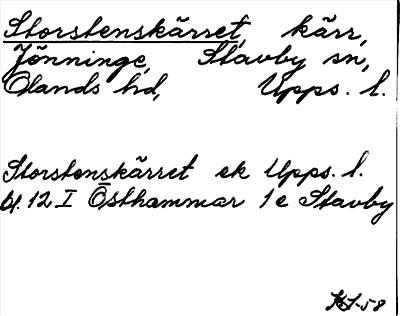 Storstenskärret, kärr,
Jönninge, Stavby sn,
Olands hd, Upps. l.
Storstenskärret ek Upps. l.
bl. 12 I Östhammar 1e Stavby